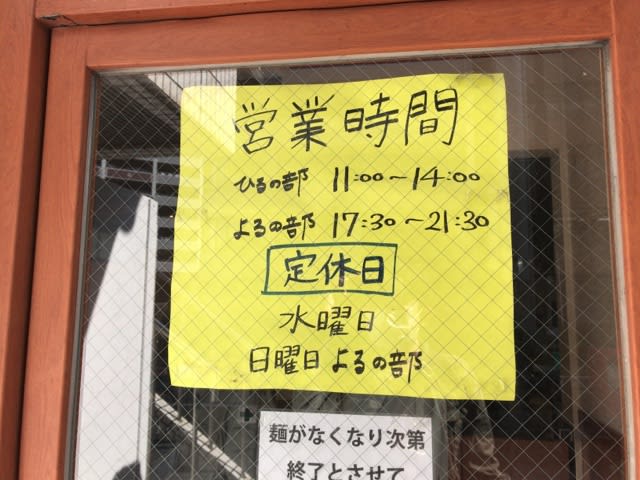 営業時間
ひるの部 11:00〜14:00
よるの部 17:30〜21:30
定休日
水曜日
日曜日 よるの部
麺がなくなり次第
終了とさせて